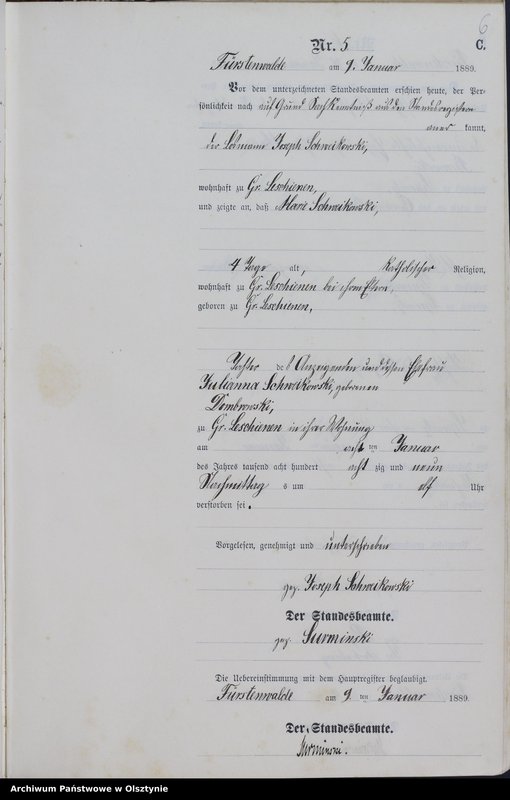 6
Nr. 5
C.
Fürstenwalde am 9. Januar 1889.
Vor dem unterzeichneten Standesbeamten erschien heute, der Per-
sönlichkeit nach auf Grund
kannt,
der Joseph Schweikowski,
wohnhaft zu Gr. Leschienen,
und zeigte an, daß Marie Schweikowski,
4 Tage alt, katholischer Religion,
wohnhaft zu Gr. Leschienen bei ihren Eltern,
geboren zu Gr. Leschienen,
Tochter des Anzeigenden und dessen Ehefrau
Julianna Schweikowski, geborenen
Dombrowski,
zu Gr. Leschienen in ihrer Wohnung
am acht ten Januar
des Jahres tausend acht hundert acht zig und neun
Nachmittag s um elf Uhr
verstorben sei.
Vorgelesen, genehmigt und unterschrieben
gez. Joseph Schweikowski
Der Standesbeamte.
gez. Surminski
Die Uebereinstimmung mit dem Hauptregister beglaubigt.
Fürstenwalde am 9. ten Januar 1889.
Der Standesbeamte.
Surminski.
Archiwum Państwowe w Olsztynie